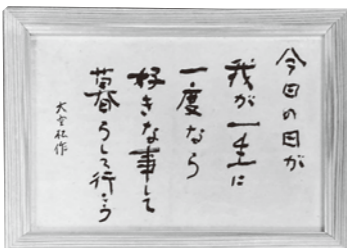 今日の日が
我が一生に
一度なら
好きな事して
暮らして行こう